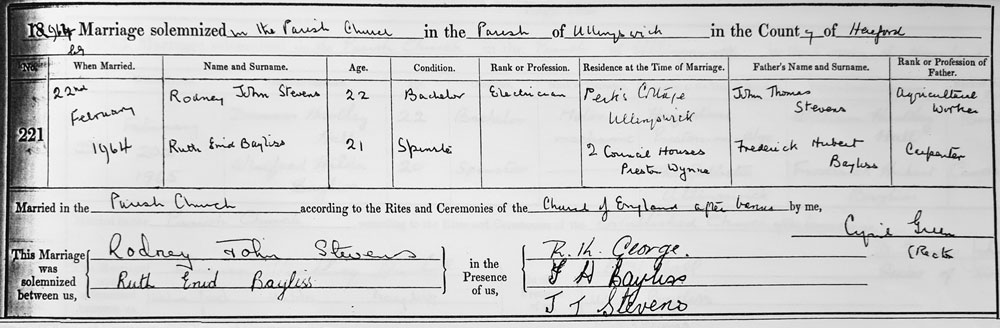 1964 Marriage solemnized in the Parish Church in the Parish of Ullingswick in the County of Hereford
No. When Married. Name and Surname. Age. Condition. Rank or Profession. Residence at the Time of Marriage. Father's Name and Surname. Rank or Profession of Father.
221
22nd February 1964
Rodney John Stevens 22 Bachelor Electrician Perk's Cottage Ullingswick John Thomas Stevens Agricultural Worker
Ruth Enid Bayliss 21 Spinster 2 Council Houses Preston Wynne Frederick Hubert Bayliss Carpenter
Married in the Parish Church according to the Rites and Ceremonies of the Church of England after banns by me,
Cyril Green
(Rector
This Marriage was solemnized between us,
Rodney John Stevens
Ruth Enid Bayliss
in the Presence of us,
R. H. George.
F H Bayliss
J T Stevens